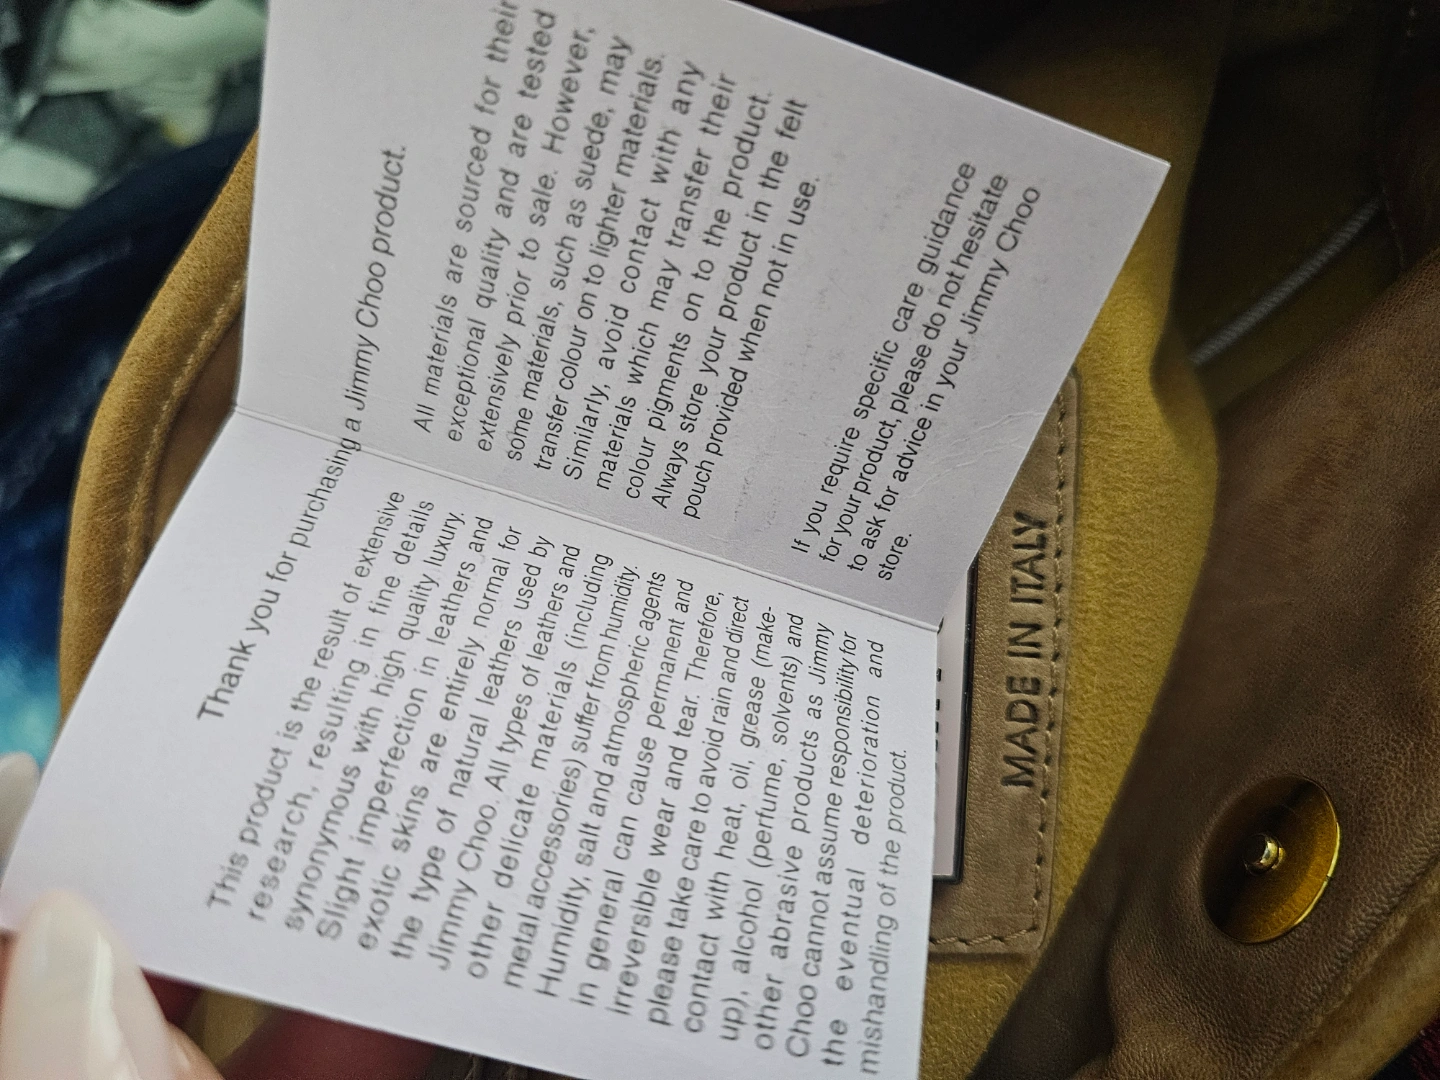 Thank you for purchasing a Jimmy Choo product.
This product is the result of extensive
research, resulting in fine details
synonymous with high quality luxury.
Slight imperfection in leathers and
exotic skins are entirely normal for
the type of natural leathers used by
Jimmy Choo. All types of leathers and
other delicate materials (including
metal accessories) suffer from humidity.
Humidity, salt and atmospheric agents
in general can cause permanent and
irreversible wear and tear. Therefore,
please take care to avoid rain and direct
contact with heat, oil, grease (make-
up), alcohol (perfume, solvents) and
other abrasive products as Jimmy
Choo cannot assume responsibility for
the eventual deterioration and
mishandling of the product.
All materials are sourced for their
exceptional quality and are tested
extensively prior to sale. However,
some materials, such as suede, may
transfer colour on to lighter materials.
Similarly, avoid contact with any
materials which may transfer their
colour pigments on to the product.
Always store your product in the felt
pouch provided when not in use.
If you require specific care guidance
for your product, please do not hesitate
to ask for advice in your Jimmy Choo
store.
MADE IN ITALY